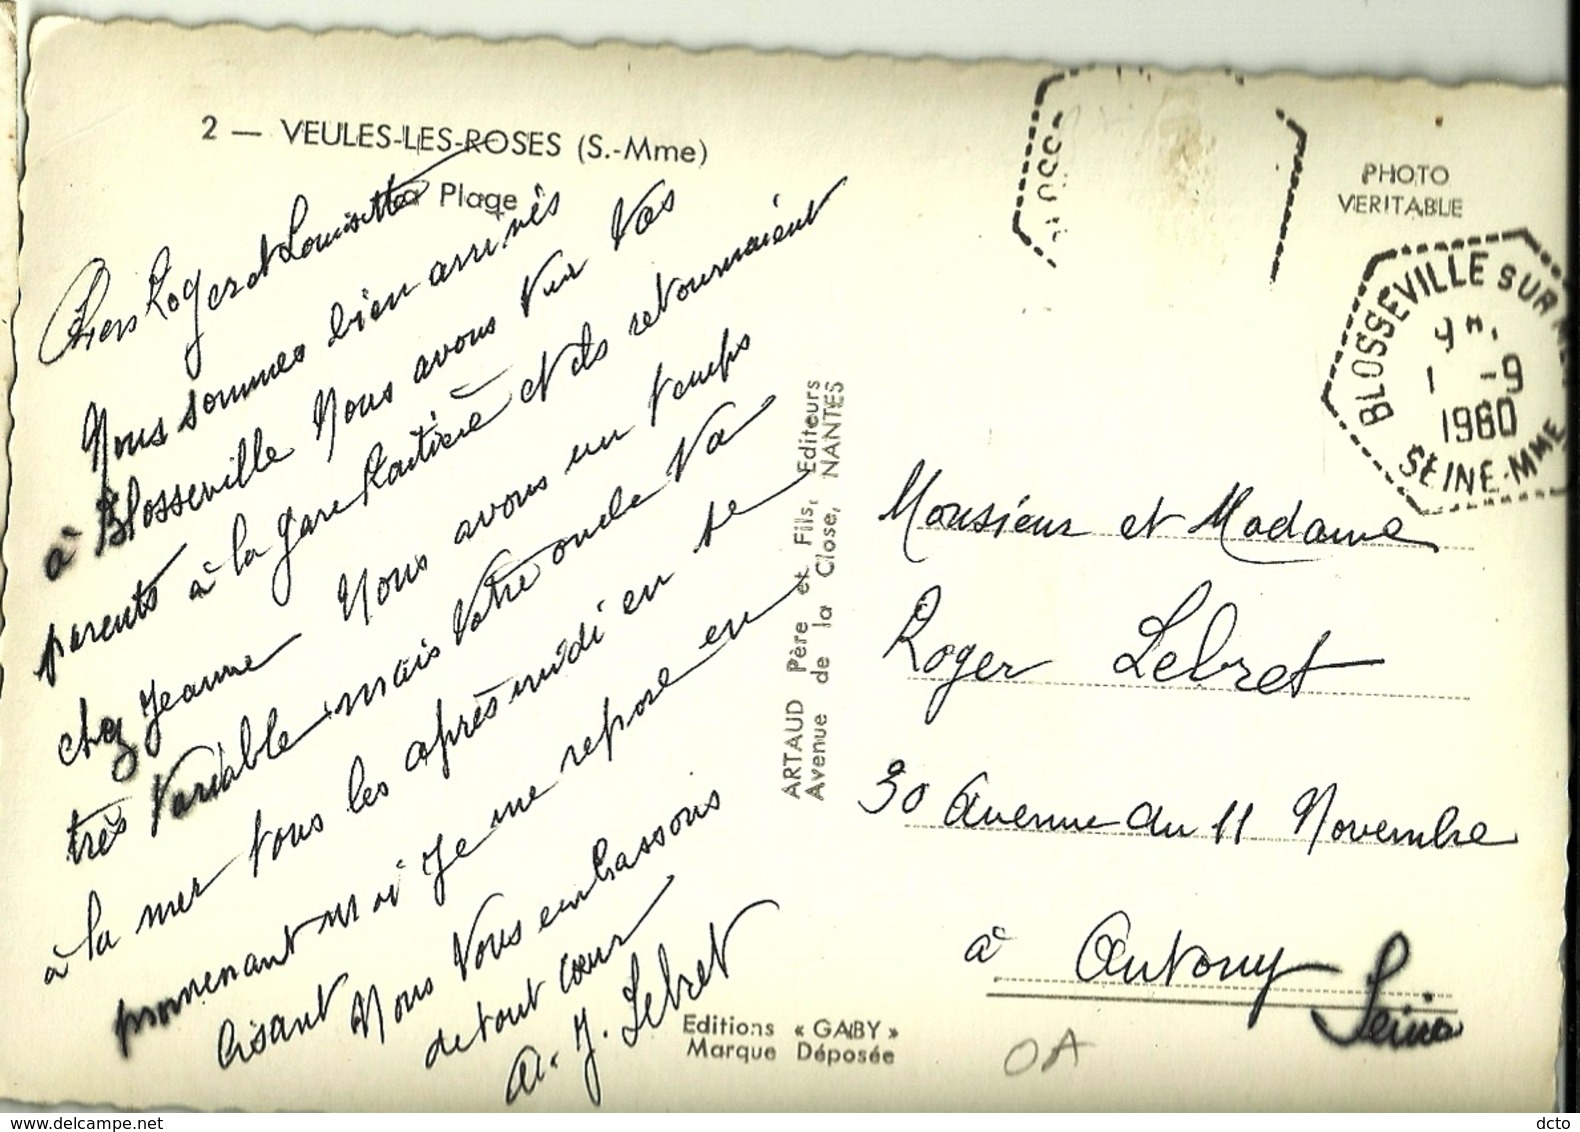 2 — VEULES-LES-ROSES (S.-Mme)
La Plage
Chers Roger et Louisette
Nous sommes bien arrivés
à Blosseville Nous avons vu vos
parents à la gare Routière et ils retournaient
chez Jeanne Nous avons un temps
très variable mais votre oncle va
à la mer tous les après midi en se
promenant moi je me repose en
lisant Nous vous embrassons
de tout cœur
A. J. Lebret
ARTAUD Père et Fils, Editeurs
Avenue de la Close, NANTES
Editions « GABY »
Marque Déposée
PHOTO
VERITABLE
BLOSSEVILLE SUR MER
9H.
1 -9
1960
SEINE-MME
Monsieur et Madame
Roger Lebret
30 Avenue du 11 Novembre
à Antony
Seine
OA
dcto